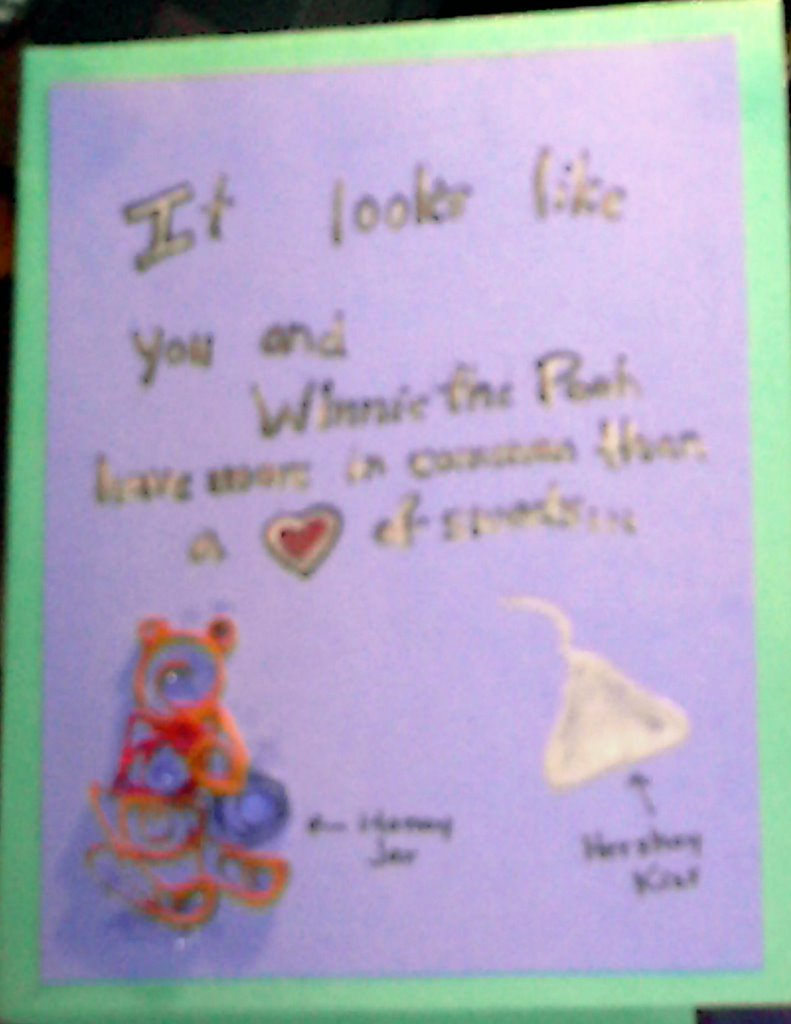 It looks like
you and
Winnie the Pooh
have more in common than
a of sweets...
Honey
Jar
Hershey
Kiss